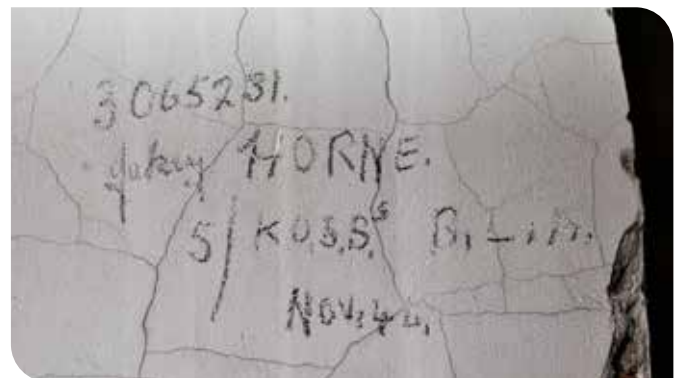 3065231.
HORNE.
5/ K.O.S.B.s B.L.A.
Nov. 44.